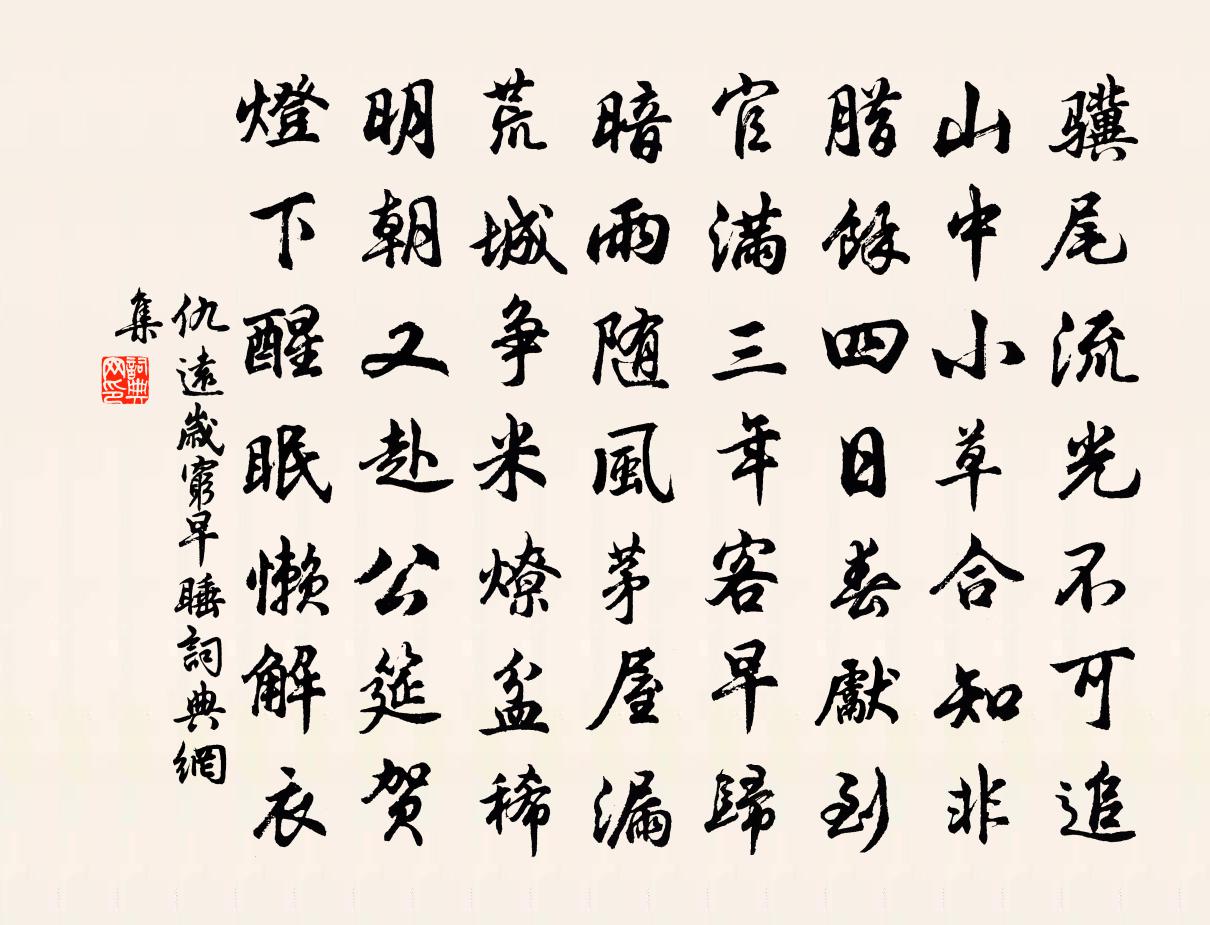 骥尾流光不可追
山中小草合知非
腊餘四日春獻到
官满三年客早歸
暗雨随風茅屋漏
荒城争米燎盆稀
明朝又赴公筵贺
燈下醒眠懒解衣
仇遠歲窮早睡詞典網
集
詞典
网印